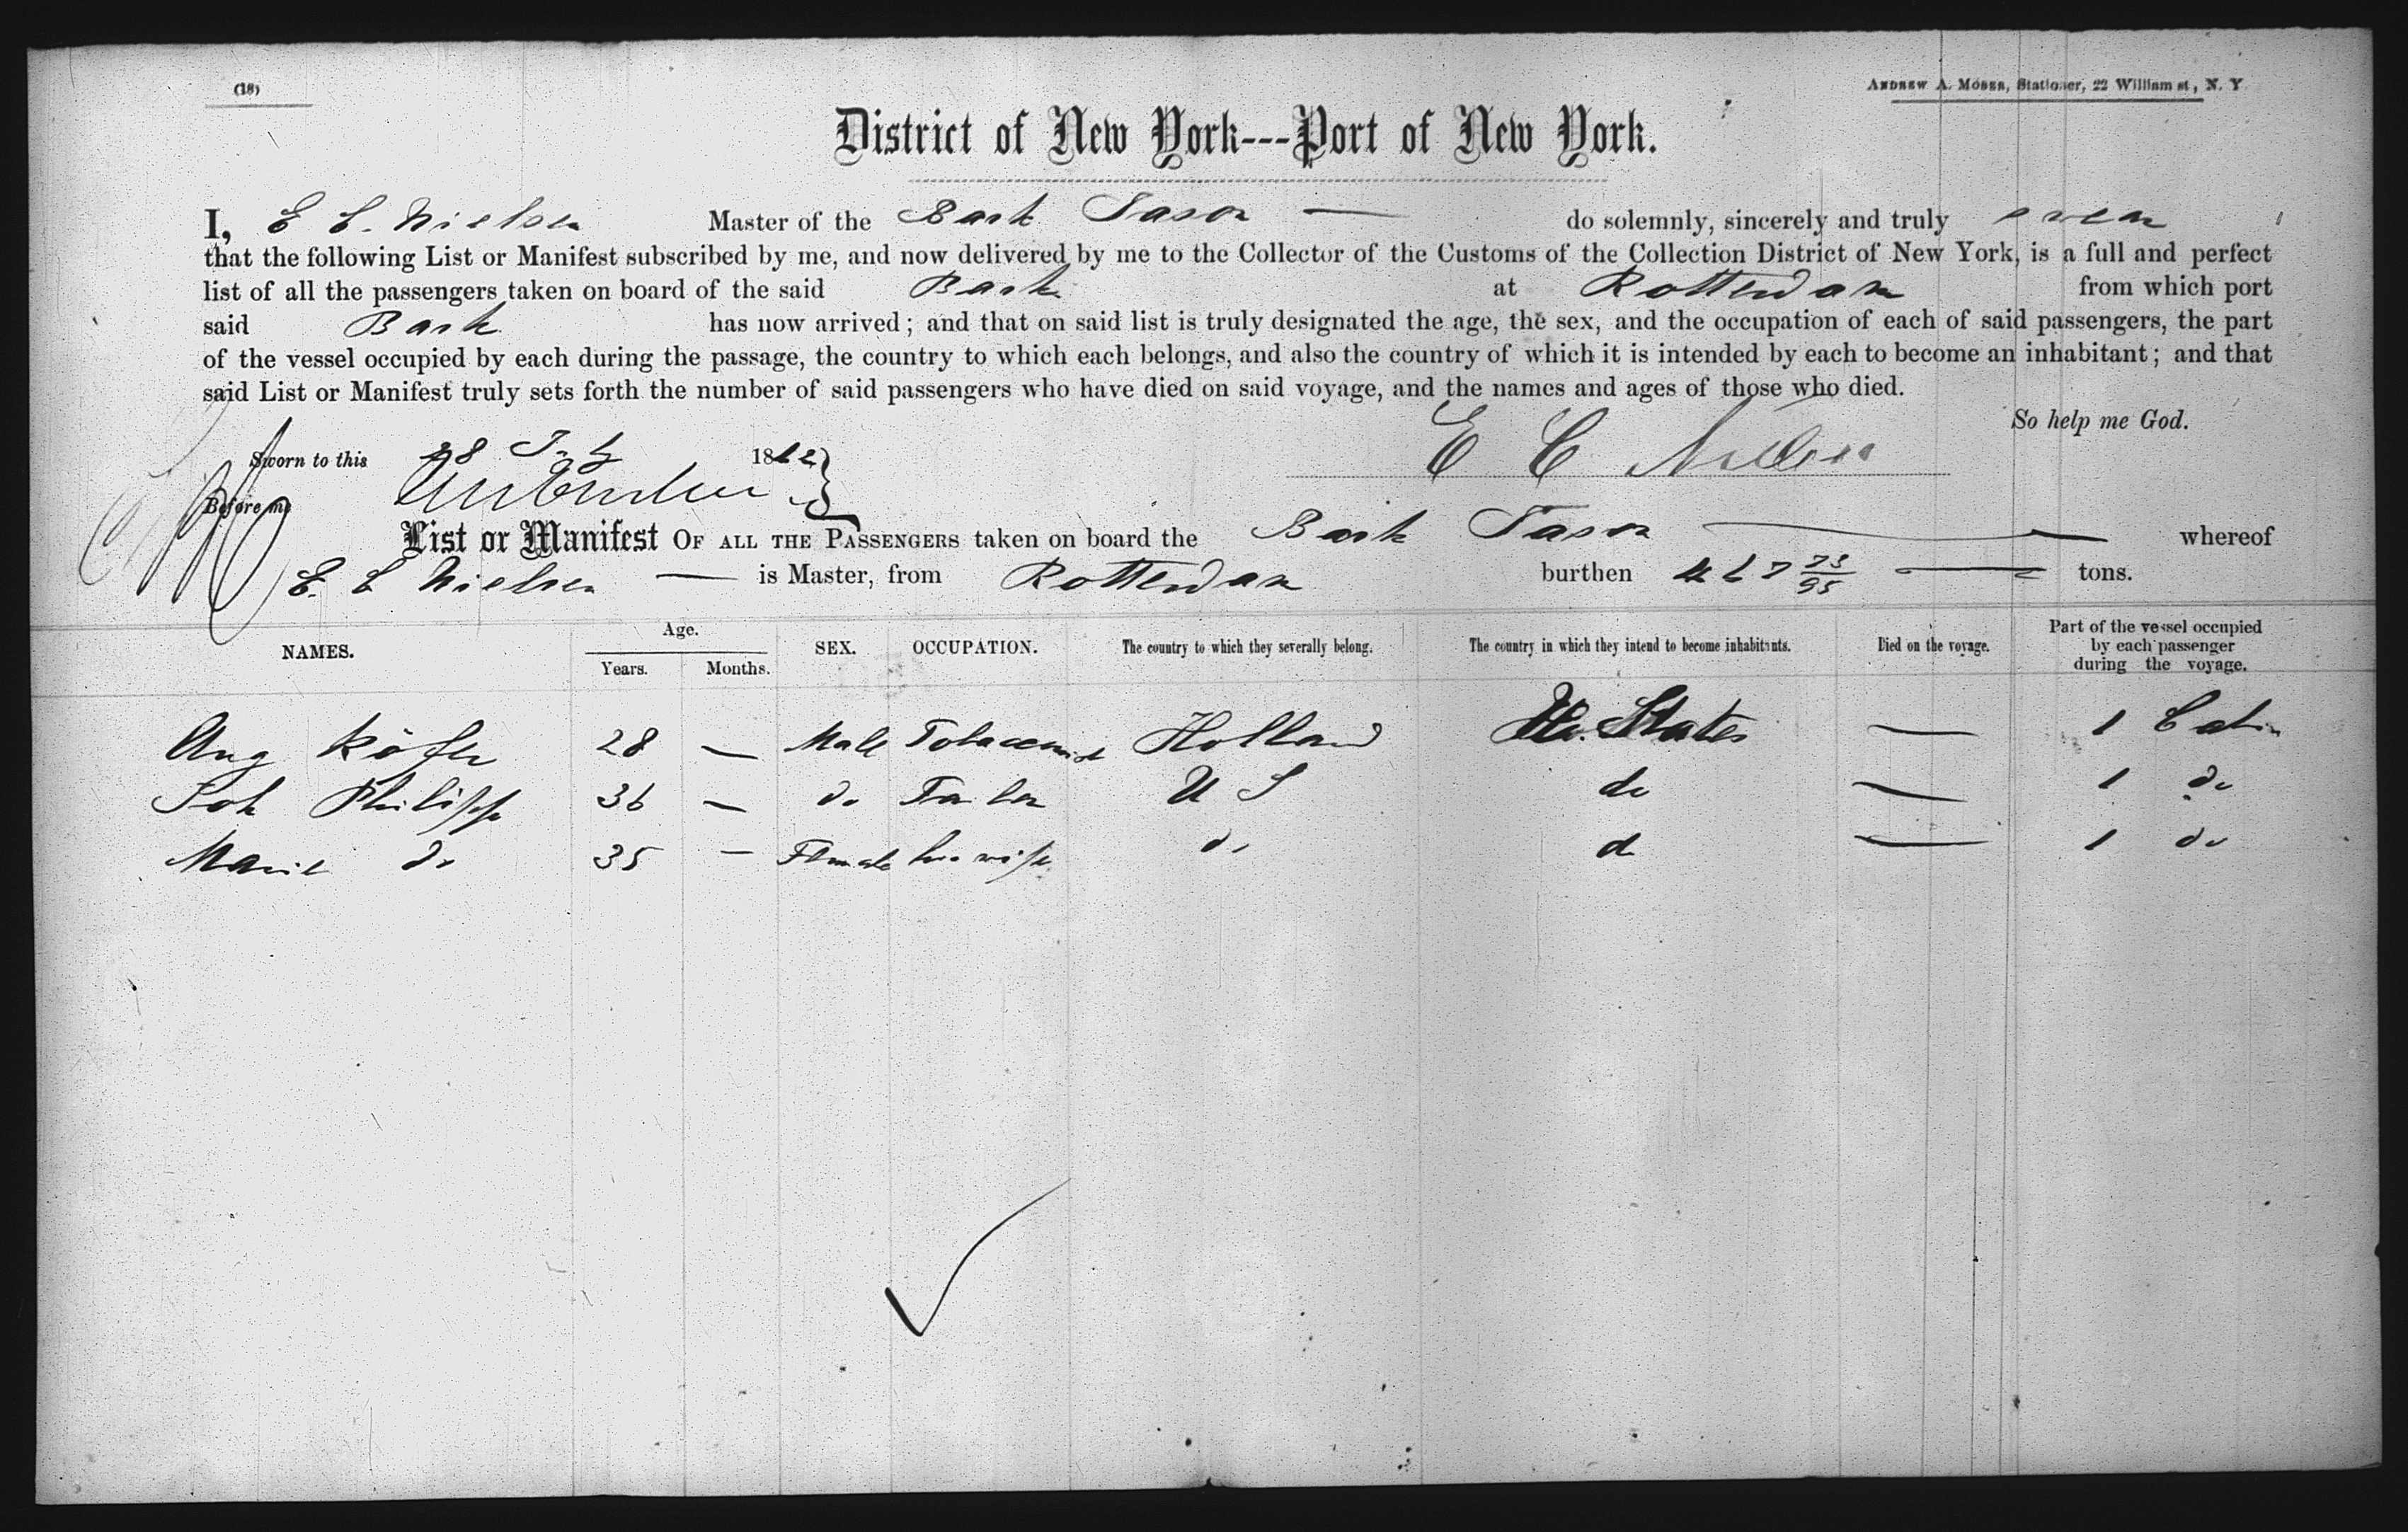 (18)
ANDREW A. MOSER, Stationer, 22 William st, N. Y
District of New York---Port of New York.
I, E C. Nielsen Master of the Bark Jason — do solemnly, sincerely and truly swear
that the following List or Manifest subscribed by me, and now delivered by me to the Collector of the Customs of the Collection District of New York, is a full and perfect
list of all the passengers taken on board of the said Bark at Rotterdam from which port
said Bark has now arrived; and that on said list is truly designated the age, the sex, and the occupation of each of said passengers, the part
of the vessel occupied by each during the passage, the country to which each belongs, and also the country of which it is intended by each to become an inhabitant; and that
said List or Manifest truly sets forth the number of said passengers who have died on said voyage, and the names and ages of those who died.
So help me God.
Sworn to this 28 1862
E C Nielsen
Before me
List or Manifest OF ALL THE PASSENGERS taken on board the Bark Jason — whereof
E. C Nielsen — is Master, from Rotterdam burthen 467 73/95 — tons.
NAMES. Age. Years. Months. SEX. OCCUPATION. The country to which they severally belong. The country in which they intend to become inhabitants. Died on the voyage. Part of the vessel occupied by each passenger during the voyage.
Aug Köfer 28 — Male Tobacconist Holland U. States — 1 Cabin
Joh Philipp 36 — do Tailor U S do — 1 do
Marie do 35 — Female his wife do do — 1 do